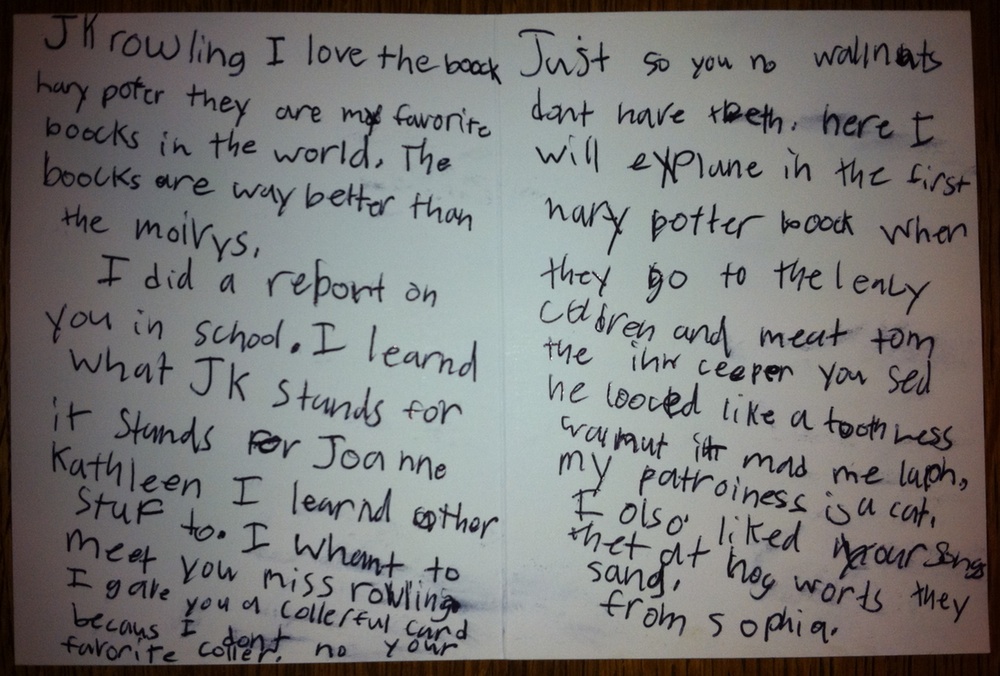 JK rowling I love the boock
hary poter they are my favorite
boocks in the world. The
boocks are way better than
the moivys.
I did a report on
you in school. I learnd
what JK stands for
it stands for Joanne
Kathleen I learnd other
stuf to. I whant to
meet you miss rowling
I gave you a collerful card
becaus I dont no your
favorite coller.
Just so you no wallnuts
dont have teeth. here I
will explane in the first
hary potter boock when
they go to the leaky
coldren and meat tom
the inn ceeper you sed
he looced like a toothless
walnut it mad me laph.
my patroiness is a cat.
I olso liked your songs
thet at hog words they
sang.
from sophia.